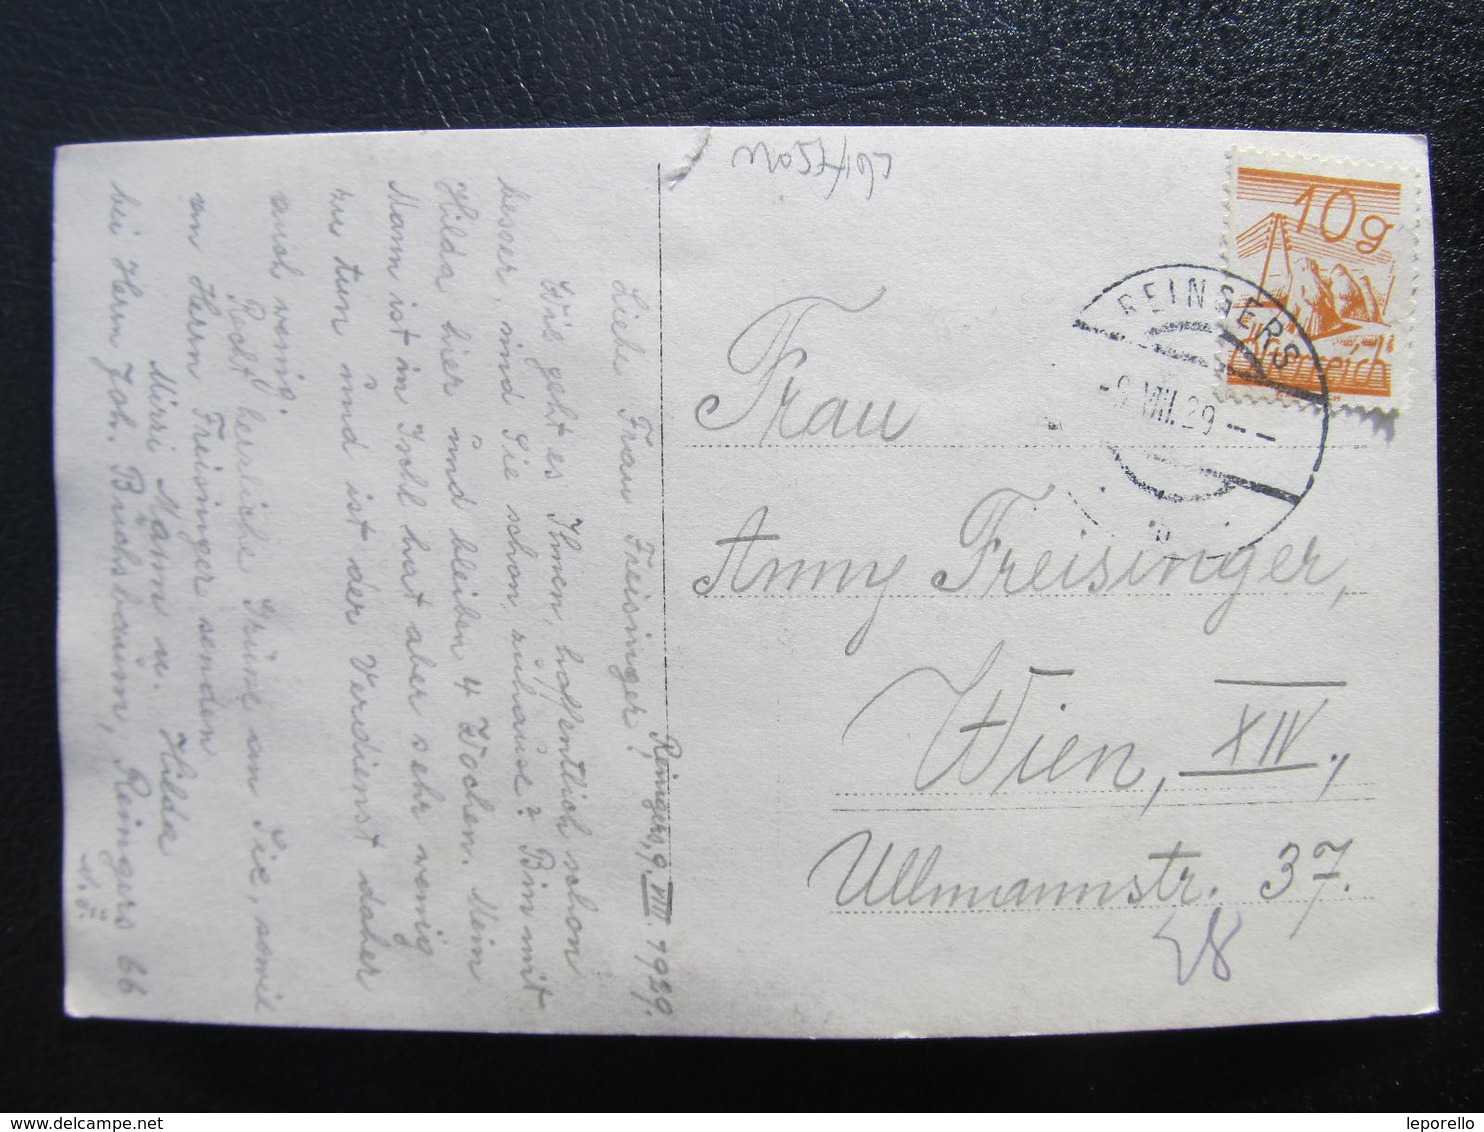 Reingers, 9. VIII. 1929.
Liebe Frau Freisinger!
Wie geht es Ihnen, hoffentlich schon
besser und Sie schon zuhause? Bin mit
Hilda hier und bleiben 4 Wochen. Mein
Mann ist in Ischl hat aber sehr wenig
zu tun und ist der Verdienst daher
auch wenig.
Recht herzliche Grüße an Sie, sowie
an Herrn Freisinger senden
Mizzi Mann u. Hilda
bei Herrn Joh. Buchsbaum, Reingers 66
N. Ö.
10g
Österreich
REINGERS
-9.VIII.29--
Frau
Anny Freisinger,
Wien, XIV.,
Ullmannstr. 37.
28
leporello